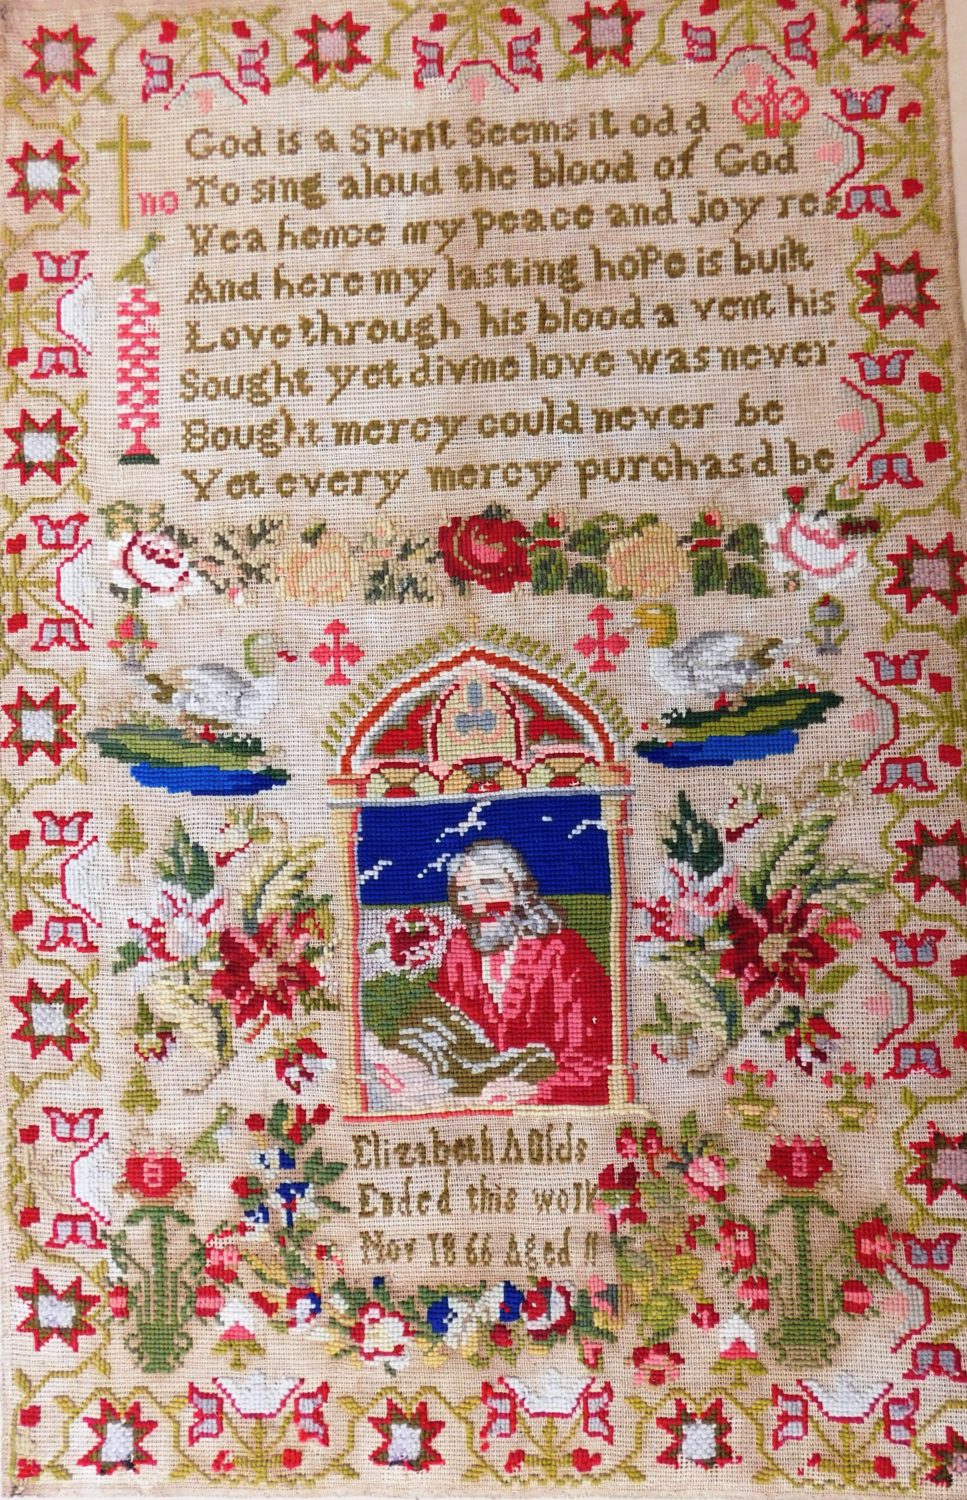 God is a Spirit Seems it odd
no To sing aloud the blood of God
Yea hence my peace and joy res
And here my lasting hope is built
Love through his blood a vent his
Sought yet divine love was never
Bought mercy could never be
Yet every mercy purchasd be
Elizabeth A Olds
Ended this work
Nov 1866 Aged 11